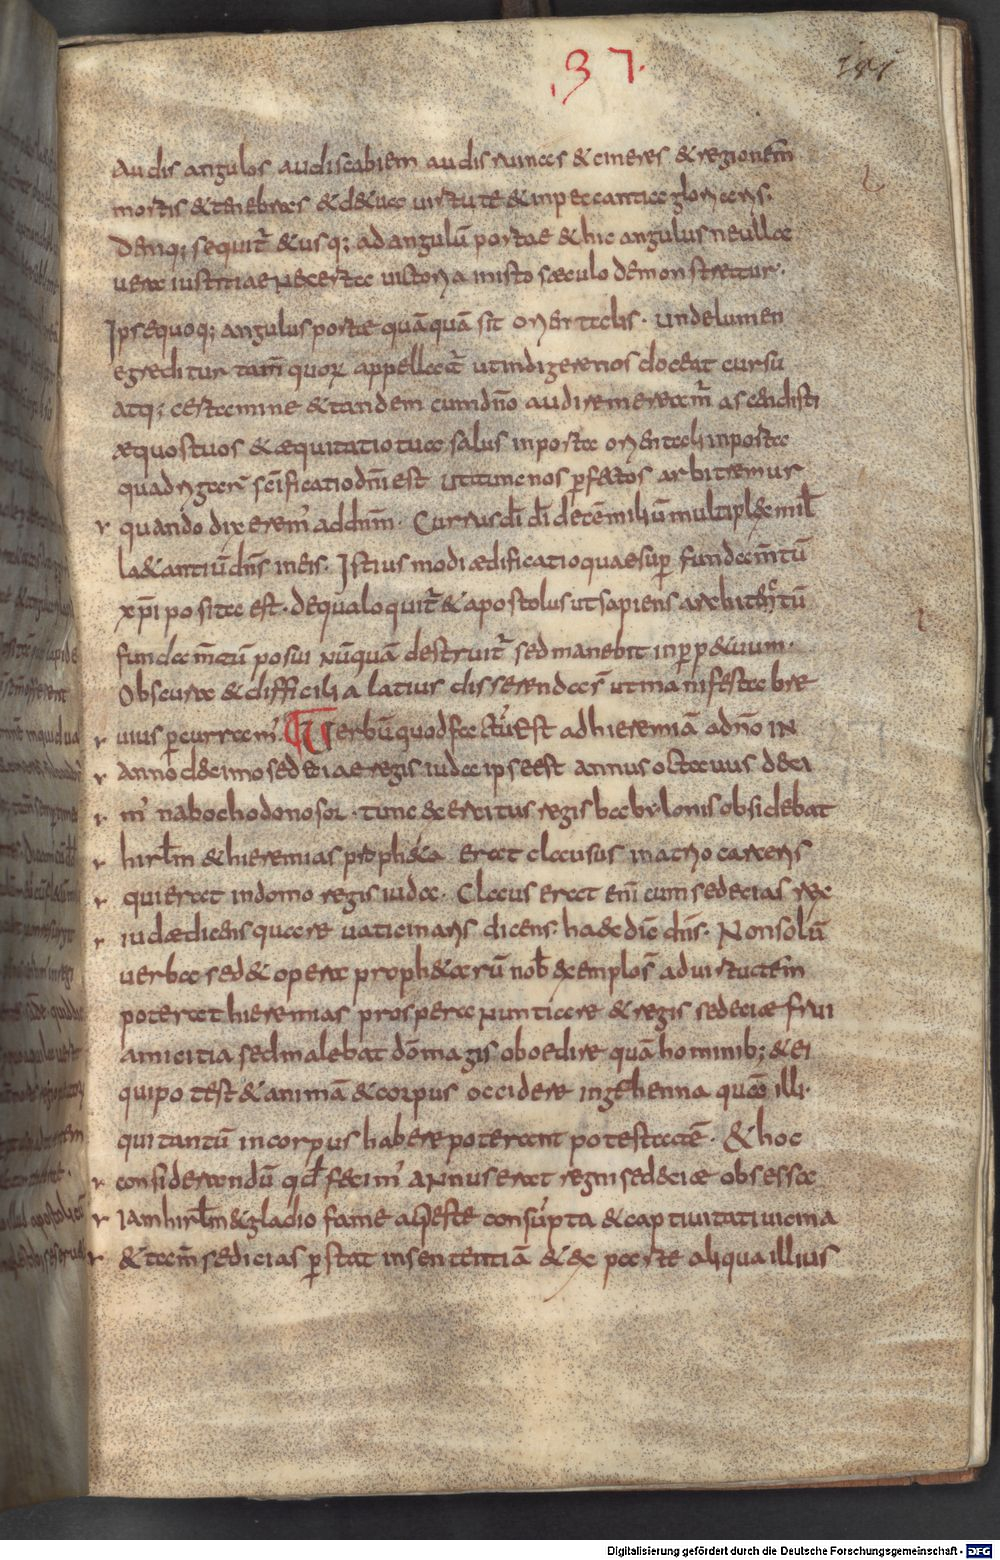 37.
audis angulos audis cabiem audis ruinas & cineres & regionem̄
mortis & tenebras & d&uo uirtute & inpeccantia gloriaris.
Deniq; sequit̃ & usq; ad angulū portae & hic angulus nulla
uera iustitiae perfecta uictoria in isto saeculo demonstratur.
Ipse quoq; angulus portae quāquā sit orientalis. unde lumen
egreditur tam̄ quor appellat̃ ut indigere nos doceat cursu
atq; certamine & tandem cum dn̄o audire mereamr̃ ascendisti
aequos tuos & aequitatio tua salus in porta orientali in porta
quadrigarū sc̄ificatio dn̄i est ut tunc nos ꝑfectos arbitremur
r quando dixerem' ad dn̄m. Currus dī dī decē miliū multiplex mil
la&antiū dn̄s in eis. Istius modi aedificatio quae sup̄ fundam̄tū
xp̄i posita est. de qua loquit̃ & apostolus ut sapiens archit&tū
fundam̄tū posui nūquā destruit̃ sed manebit in ꝑp&uum.
Obscura & difficilia latius disserenda s̄ ut manifesta bre
r uius ꝑcurram'. Uerbū quod factū est ad hieremiā a dn̄o IN
r anno decimo sedeciae regis iudae ipse est annus octauus deci
r m' nabochodonosor. tunc exercitus regis babylonis obsidebat
r hirl̄m & hieremias proph&a erat clausus in atrio carceris
r qui erat in domo regis iudae. Clausus erat eni cum sedecias rex
r iudae dicens quare uaticinaris dicens. haec dic̄ dn̄s. Non solū
uerba sed & opera proph&arū nob̄ exemplo s̄ ad uirtutem̄
poterat hieremias prospera nuntiare & regis sedeciae frui
amicitia sed malebat dō magis oboedire quā hominib; & ei
qui potest & animā & corpus occidere in gehenna quā illi.
qui tantū in corpus habere poterant potestatē. & hoc
r considerandū qd̄ decim' annus erat regni sedeciae obsessa
r iam hirl̄m & gladio fame & peste consūpta & captiuitati uicina
r & tam̄ sedicias ꝑstat in sententiā & ex parte aliqua illius
Digitalisierung gefördert durch die Deutsche Forschungsgemeinschaft - DFG